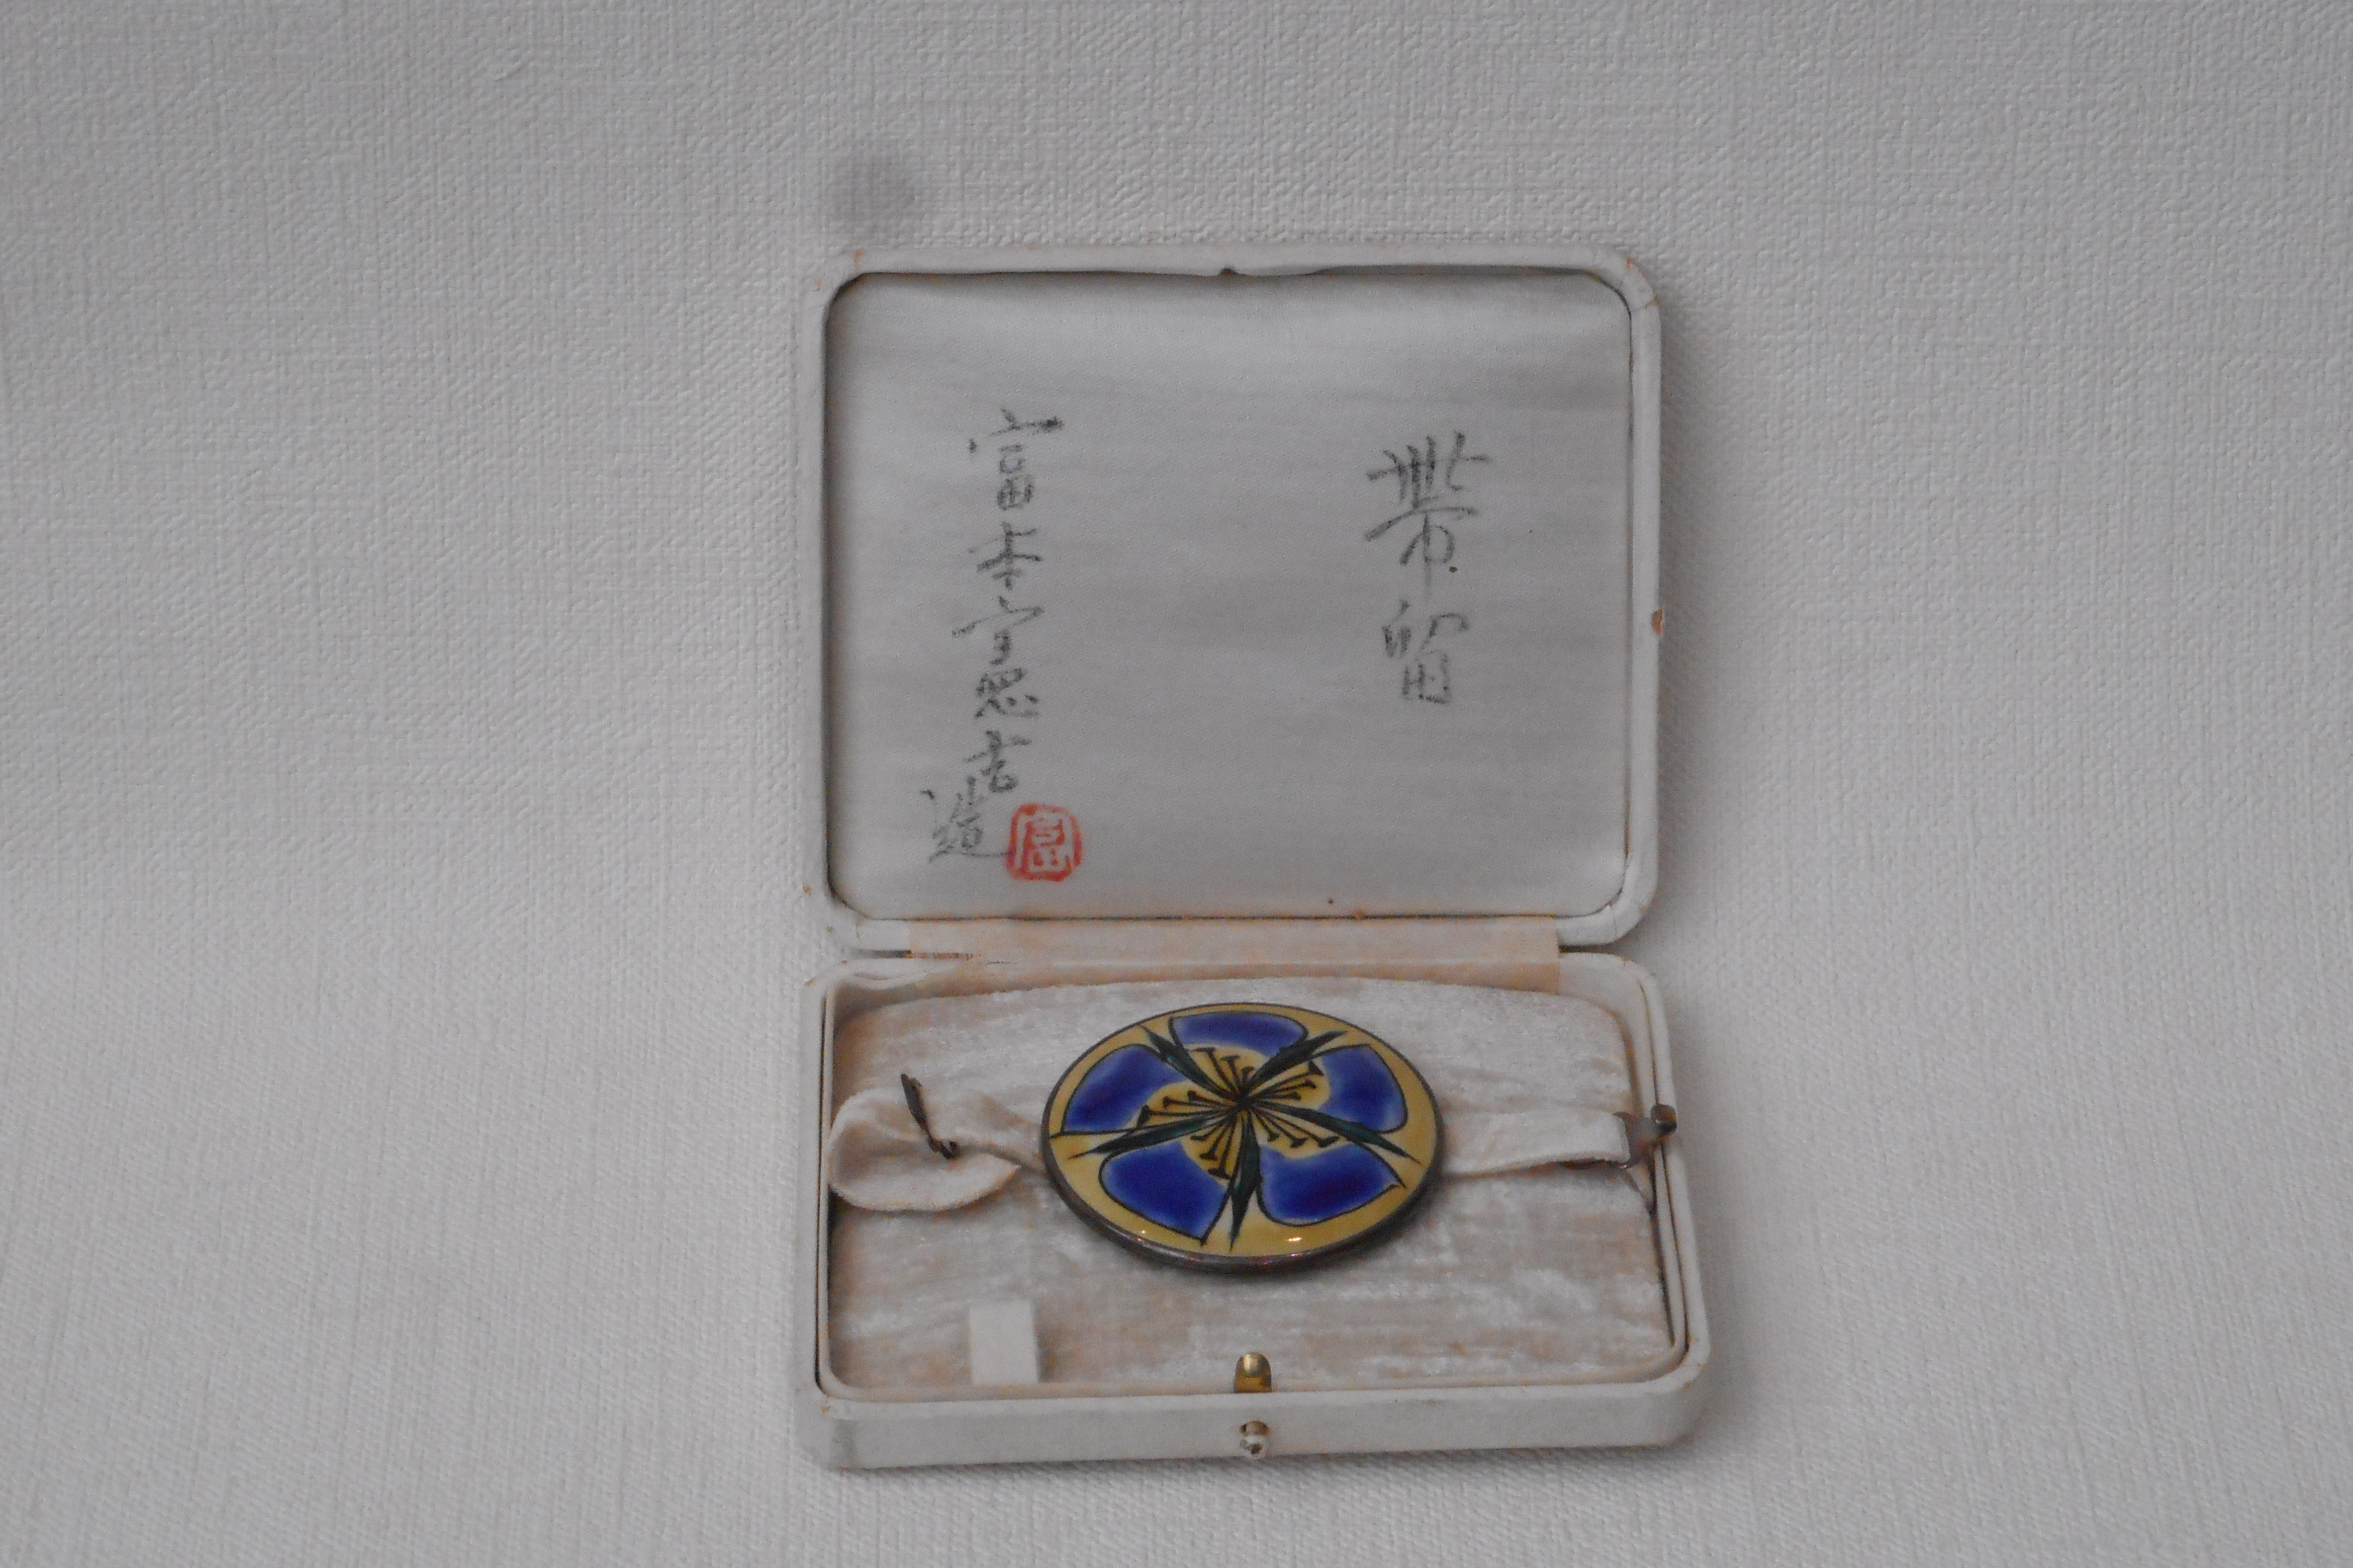 帯留
富本憲吉
造
富